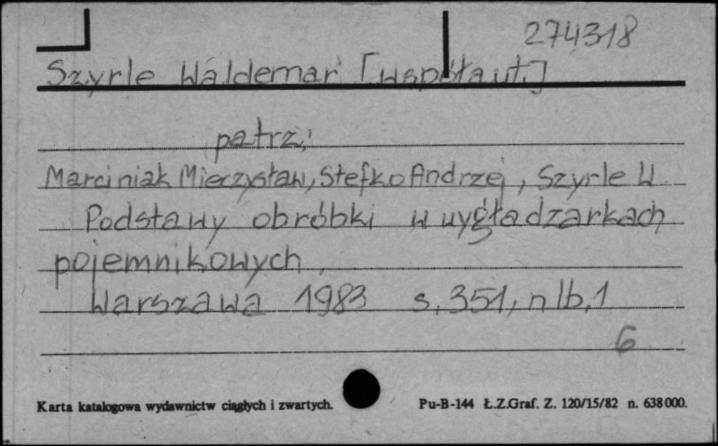 274318
Szyrle Waldemar [współaut.]
patrz:
Marciniak Mieczysław, Stefko Andrzej, Szyrle W
Podstawy obróbki w wygładzarkach
pojemnikowych,
Warszawa 1983 s. 351, nlb. 1
6
Karta katalogowa wydawnictw ciągłych i zwartych. Pu-B-144 Ł.Z.Graf. Z. 120/15/82 n. 638000.